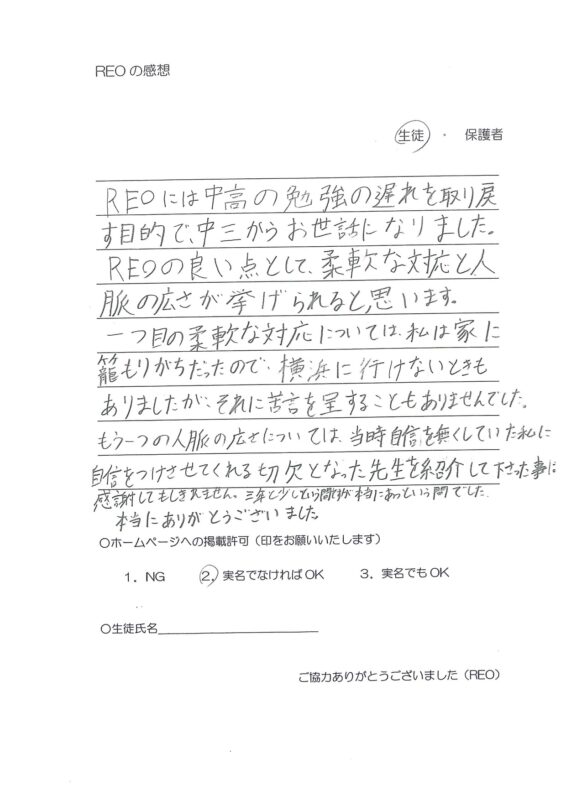 REOの感想
生徒 ・ 保護者
REOには中高の勉強の遅れを取り戻
す目的で、中三からお世話になりました。
REOの良い点として、柔軟な対応と人
脈の広さが挙げられると思います。
一つ目の柔軟な対応については、私は家に
籠もりがちだったので、横浜に行けないときも
ありましたが、それに苦言を呈することもありませんでした。
もう一つの人脈の広さについては、当時自信を無くしていた私に
自信をつけさせてくれる切欠となった先生を紹介して下さった事に
感謝してもしきれません。三年と少しという間ですが本当にあっという間でした。
本当にありがとうございました
○ホームページへの掲載許可（印をお願いいたします）
1．NG 2．実名でなければOK 3．実名でもOK
○生徒氏名
ご協力ありがとうございました（REO）